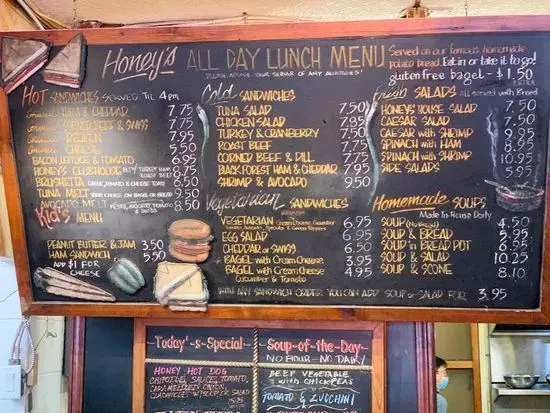 Honey's ALL DAY LUNCH MENU
PLEASE ADVISE YOUR SERVER OF ANY ALLERGIES!
Served on our famous homemade
potato bread. Eat in or take it to go!
gluten free bagel - $1.50
EXTRA
HOT SANDWICHES SERVED TIL 4pm
HAM & CHEDDAR 7.75
CORNED BEEF & SWISS 7.75
REUBEN 7.95
CHEESE 5.50
BACON LETTUCE & TOMATO 6.95
HONEY'S CLUBHOUSE
BRUSHETTA
TUNA MELT
AVOCADO MELT
Kid's MENU
PEANUT BUTTER & JAM 3.50
HAM SANDWICH 5.50
ADD $1 FOR
CHEESE
Cold SANDWICHES
TUNA SALAD 7.50
CHICKEN SALAD 7.50
TURKEY & CRANBERRY 7.50
ROAST BEEF 7.75
CORNED BEEF & DILL 7.75
BLACK FOREST HAM & CHEDDAR 7.75
SHRIMP & AVOCADO 9.50
Vegetarian SANDWICHES
VEGETARIAN 6.95
EGG SALAD 6.95
CHEDDAR OR SWISS 6.50
BAGEL with Cream Cheese 3.95
BAGEL with Cream Cheese 4.95
Cucumber & Tomato
WITH ANY SANDWICH ORDER YOU CAN ADD SOUP or SALAD FOR 3.95
Fresh SALADS all served with Bread
HONEY'S HOUSE SALAD 7.50
CAESAR SALAD 7.50
CAESAR with SHRIMP 9.95
SPINACH with HAM 8.95
SPINACH with SHRIMP 10.95
SIDE SALADS 5.95
Homemade SOUPS
Made In-House Daily
SOUP 4.50
SOUP & BREAD 5.95
SOUP 'n BREAD POT 6.95
SOUP & SALAD 10.25
SOUP & SCONE 8.10
Today's-Special
HONEY HOT DOG
CHIPOTLE SAUCE, TOMATO,
Soup-of-the-Day
NO FLOUR - NO DAIRY
BEEF VEGETABLE
with CHICKPEAS
TOMATO & ZUCCHINI